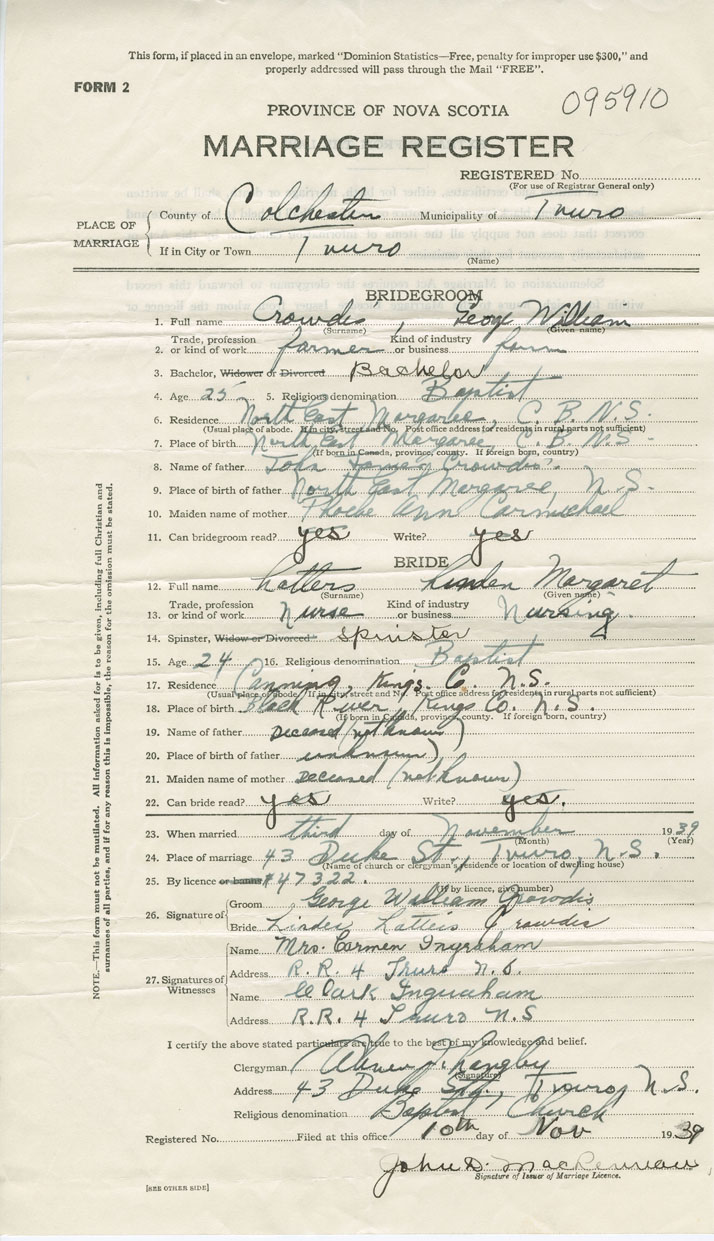 This form, if placed in an envelope, marked "Dominion Statistics—Free, penalty for improper use $300," and
properly addressed will pass through the Mail "FREE".
FORM 2
095910
PROVINCE OF NOVA SCOTIA
MARRIAGE REGISTER
REGISTERED No.
(For use of Registrar General only)
PLACE OF MARRIAGE
County of Colchester Municipality of Truro
If in City or Town Truro
(Name)
BRIDEGROOM
1. Full name Crowdis, George William
(Surname) (Given name)
2. Trade, profession or kind of work farmer Kind of industry or business farm
3. Bachelor, Widower or Divorced Bachelor
4. Age 25 5. Religious denomination Baptist
6. Residence North East Margaree, C. B. N.S.
(Usual place of abode. If in city, street and No. Post office address for residents in rural parts not sufficient)
7. Place of birth North East Margaree, C. B. N.S.
(If born in Canada, province, county. If foreign born, country)
8. Name of father John James Crowdis
9. Place of birth of father North East Margaree, N.S.
10. Maiden name of mother Phoebe Ann Carmichael
11. Can bridegroom read? yes Write? yes
BRIDE
12. Full name Latters Linden Margaret
(Surname) (Given name)
13. Trade, profession or kind of work Nurse Kind of industry or business Nursing.
14. Spinster, Widow or Divorced Spinster
15. Age 24 16. Religious denomination Baptist
17. Residence Canning, Kings Co. N.S.
(Usual place of abode. If in city street and No. Post office address for residents in rural parts not sufficient)
18. Place of birth Black River, Kings Co. N.S.
(If born in Canada, province, county. If foreign born, country)
19. Name of father Deceased (not known)
20. Place of birth of father unknown)
21. Maiden name of mother Deceased (not known)
22. Can bride read? yes Write? yes.
23. When married third day of November 1939
(Month) (Year)
24. Place of marriage 43 Duke St., Truro, N.S.
(Name of church or clergyman's residence or location of dwelling house)
25. By licence or banns #47322.
(If by licence, give number)
26. Signature of
Groom George William Crowdis
Bride Linden Latters Crowdis
27. Signatures of Witnesses
Name Mrs. Carmen Ingraham
Address R.R. 4 Truro N.S.
Name Clark Ingraham
Address R.R. 4 Truro N.S
I certify the above stated particulars are true to the best of my knowledge and belief.
Clergyman Langley
(Signature)
Address 43 Duke St., Truro, N.S.
Religious denomination Baptist Church
Registered No. Filed at this office 10th day of Nov 1939
John D. MacLennan
Signature of Issuer of Marriage Licence.
[SEE OTHER SIDE]
NOTE.—This form must not be mutilated. All information asked for is to be given, including full Christian and
surnames of all parties, and if for any reason this is impossible, the reason for the omission must be stated.